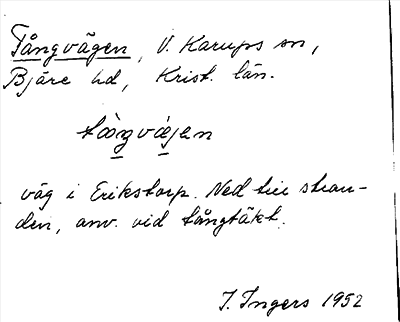 Tångvägen, V. Karups sn,
Bjäre hd, Krist. län.
tåŋvä̀jen
väg i Erikstorp. Ned till stran-
den, anv. vid tångtäkt.
I. Ingers 1952